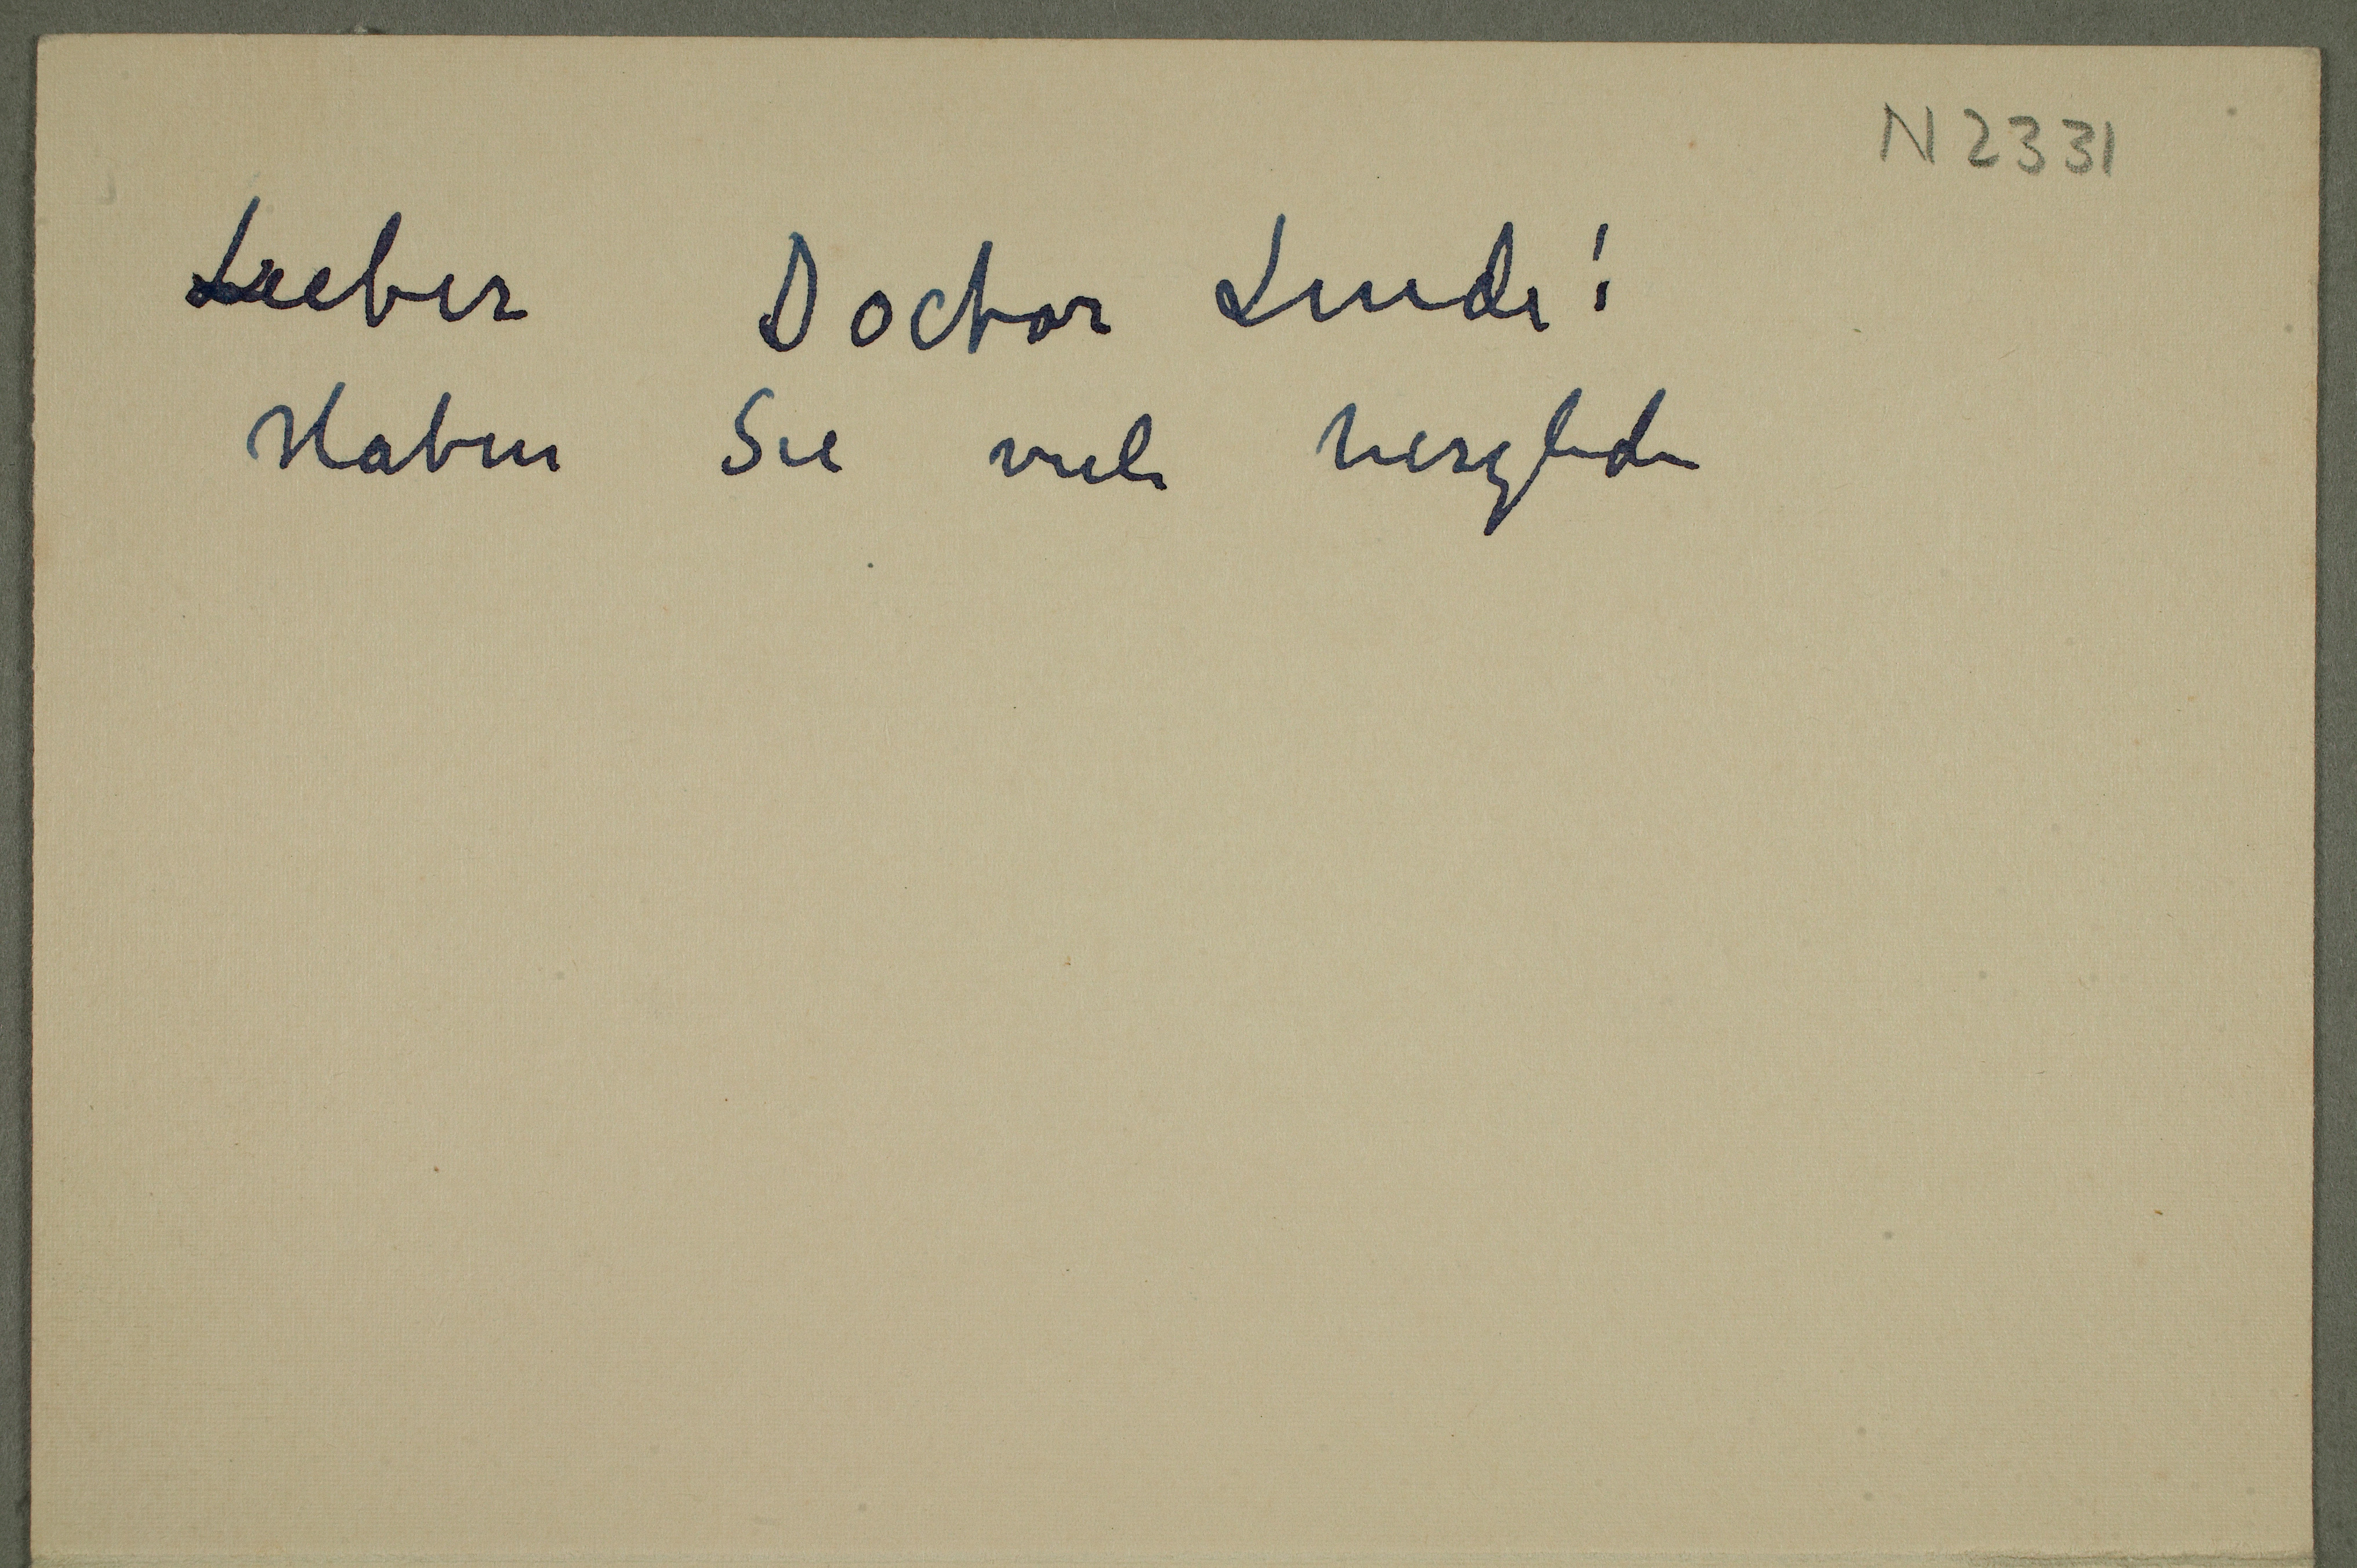 N 2331
Lieber Doctor Linde!
Haben Sie viele herzliche